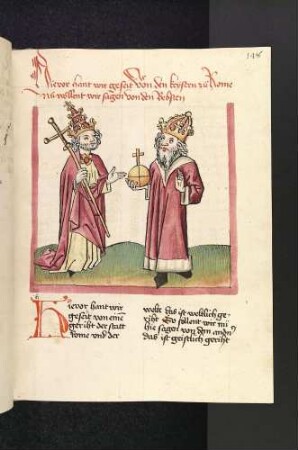 Hievor hant wir geseit von den keysern zů Rome
Nů wellent wir sagen von den Bebsten
148
Hievor hant wir
geseit von eime
geriht der statt
Rome vnd der
welte das ist weltlich ge
riht So sollent wir nů
hie sagen von dem andern
das ist geistlich geriht